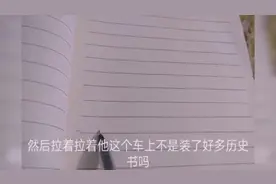 然后拉着拉着他这个车上不是装了好多历史
书吗